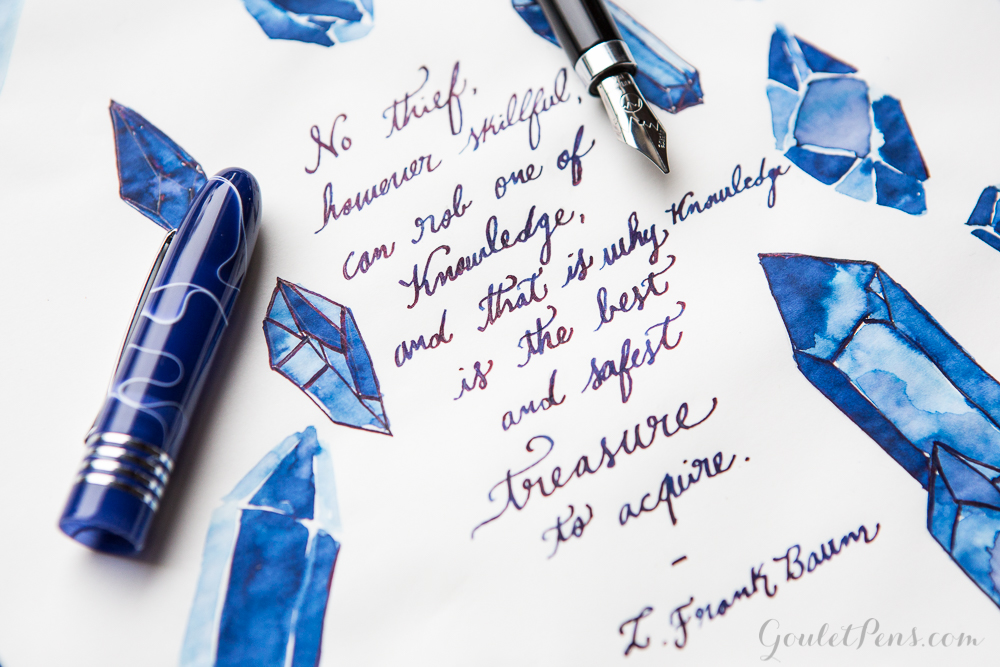 No thief,
however skillful,
can rob one of
Knowledge,
and that is why Knowledge
is the best
and safest
treasure
to acquire.
-
L. Frank Baum
GouletPens.com